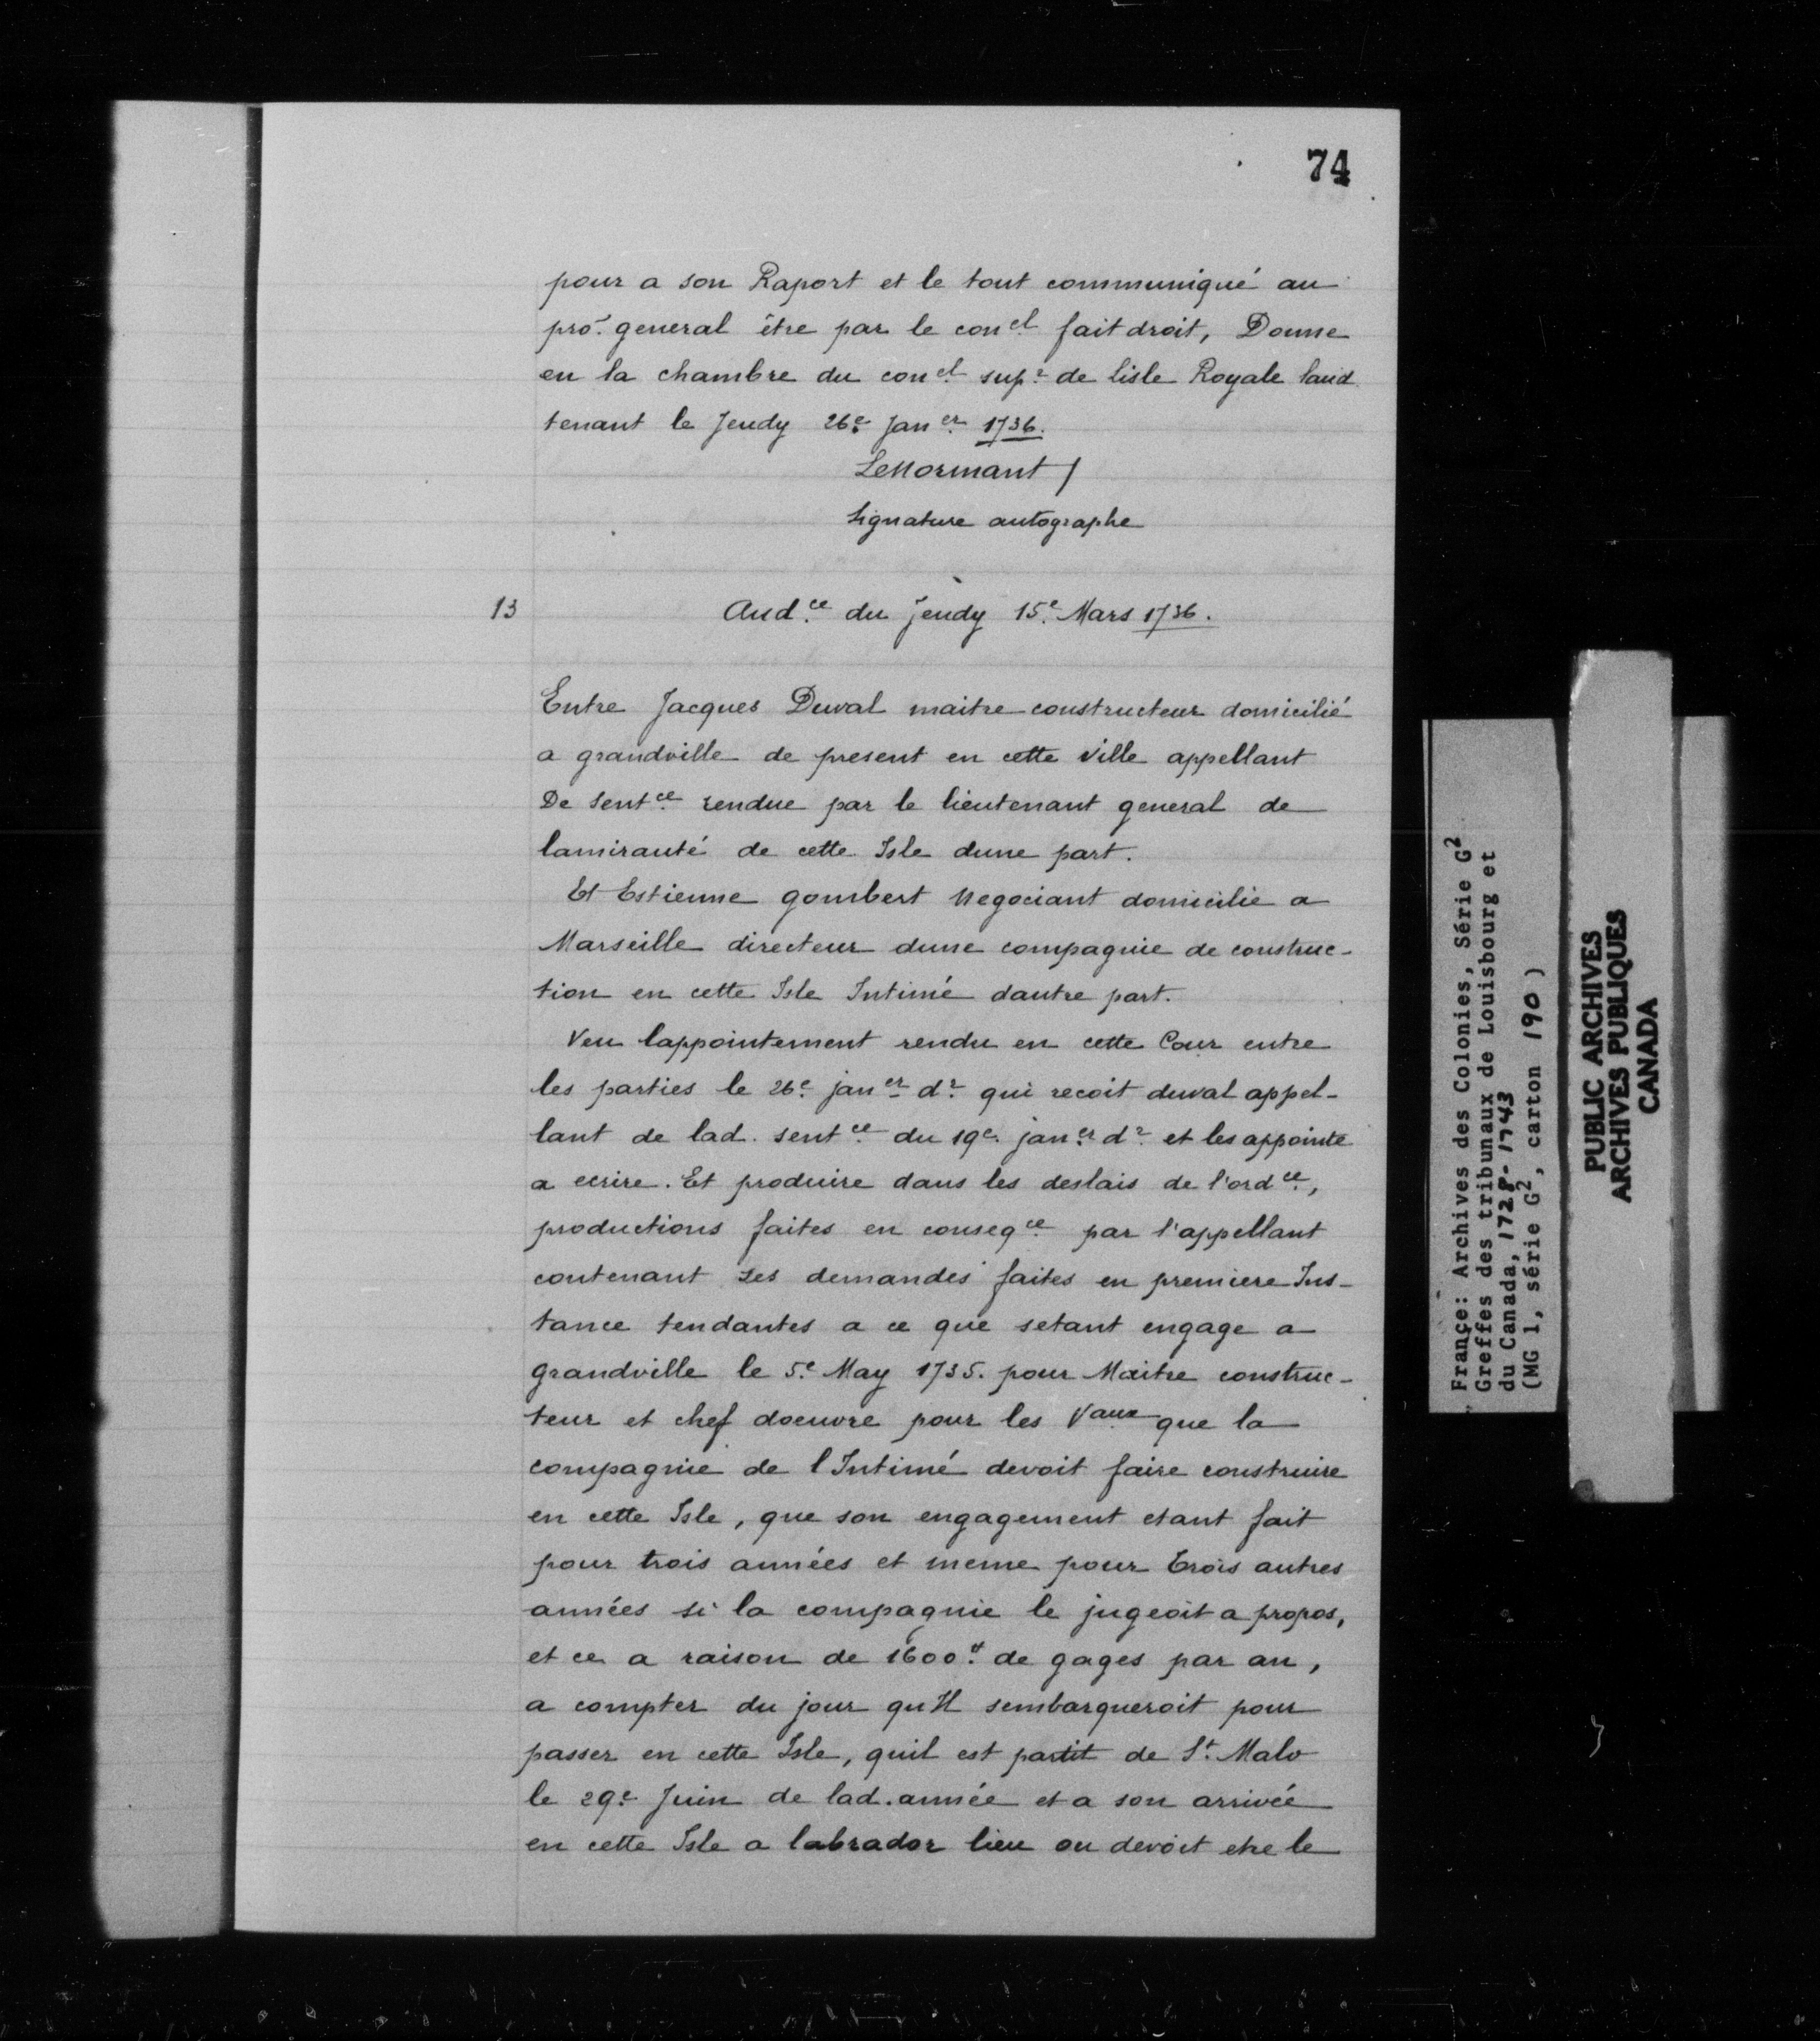 74
pour a son Raport et le tout communiqué au
pro.r general être par le con.el fait droit, Donne
en la chambre du con.el sup.r de lisle Royale laud
tenant le Jeudy 26.e Jan.er 1736.
LeNormant /
Signature autographe
13
Aud.ce du jeudy 15.e Mars 1736.
Entre Jacques Duval maitre constructeur domicilié
a grandville de present en cette ville appellant
De Sent.ce rendue par le lieutenant general de
lamirauté de cette Isle dune part.
Et Estienne gombert Negociant domicilie a
Marseille directeur dune compagnie de construc-
tion en cette Isle Intimé dautre part.
Veu lappointement rendu en cette Cour entre
les parties le 26.e jan.er d.r qui recoit duval appel-
lant de lad. sent.ce du 19.e jan.er d.r et les appointe
a ecrire. Et produire dans les deslais de l'ord.ce,
productions faites en conseq.ce par l'appellant
contenant ses demandes faites en premiere Ins-
tance tendantes a ce que setant engage a
grandville le 5.e May 1735. pour Maitre construc-
teur et chef doeuvre pour les V.aux que la
compagnie de l Intimé devoit faire construire
en cette Isle, que son engagement etant fait
pour trois années et meme pour trois autres
années si la compagnie le jugeoit a propos,
et ce a raison de 1600.# de gages par an,
a compter du jour qu Il sembarqueroit pour
passer en cette Isle, quil est partit de S.t Malo
le 29.e Juin de lad. année et a son arrivée
en cette Isle a labrador lieu ou devoit etre le
France: Archives des Colonies, Série G2
Greffes des tribunaux de Louisbourg et
du Canada, 1728-1743
(MG 1, série G2, carton 190)
PUBLIC ARCHIVES
ARCHIVES PUBLIQUES
CANADA